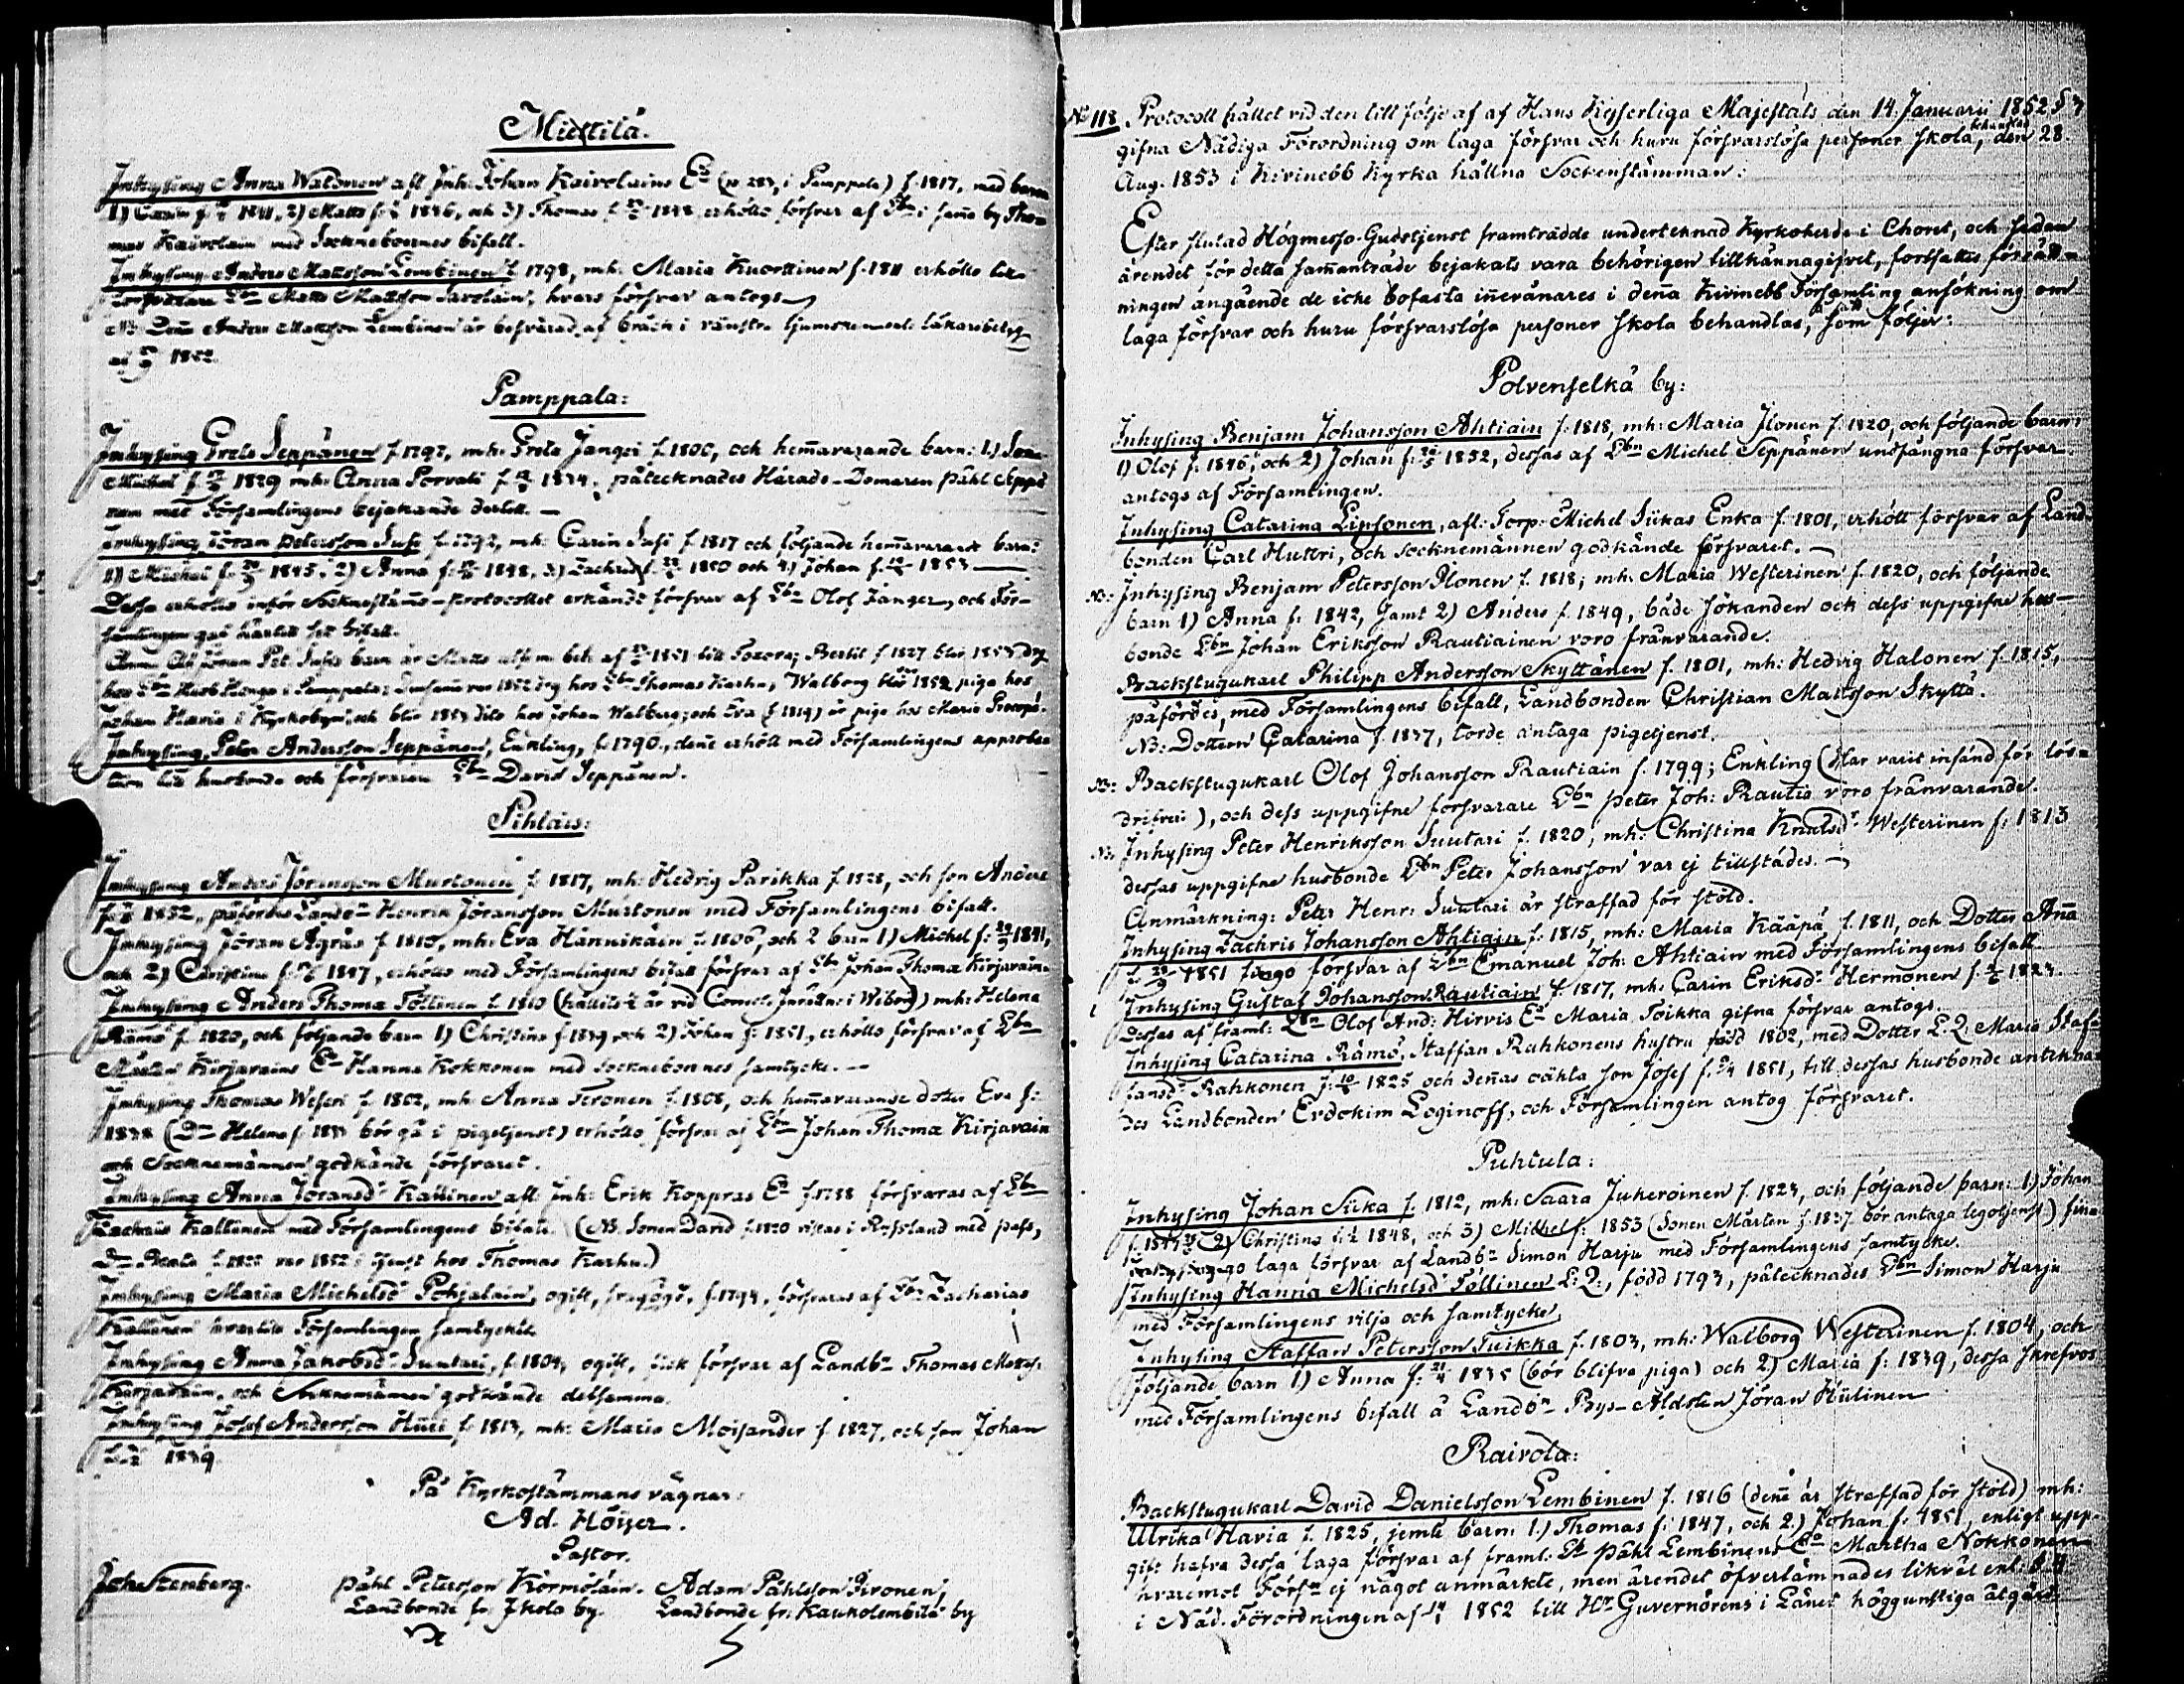 Miettilä.
Inhysing Anna Waldonen afl. Inh: Johan Kairolains Ea (p. 283, i Pamppala) f. 1817, med barn
1) Carin 2) Matts 1836, och 3) Thomas erhöllo försvar af Lbn i samma by Tho-
mas Kairolain med Socknebornes bifall.
Inhysing Anders Mattsson Lembinen f. 1798, mh. Maria Kuorttinen f. 1811 erhöllo till
försvarare Lbn Matts Mattsson Savolain, hvars försvar antogs
NB. Denne Anders Mattsson Lembinen är besvärad af bråck i vänstra ljumsken enl. läkarebetyg
af 1852.
Pamppala:
Inhysing Grels Seppänen f. 1797, mh. Greta Jangei f. 1800, och hemavarande barn: 1.) Son
Michel f. 1829 mh. Anna Porvali f. 1834. påtecknades Härads-Domaren Påhl
med Församlingens bejakande dertill. —
Inhysing Jöran Petersson Susi f. 1792, mh. Carin Susi f. 1817 och följande hemavarande barn:
1) Michel f. 1845. 2) Anna f. 1848. 3) Zachris f. 1850 och 4) Johan f. 1853
Dessa erhöllo inför Socknestämmo-protocollet erkändt försvar af Lbn Olof Janger, och För-
samlingen gaf härtill sit bifall.
barn är Matts 1851 till Bertil f. 1827 blir 1853 dr.
hos Lbn i Pamppala; 1852 drg hos Lbn Thomas Karhu, Walborg blir 1852 piga hos
Johan Havia i Kyrkobyn, och blir 1853 dito hos Johan Walberg; och Eva (f. 1819) är piga hos Maria
Inhysing, Peter Andersson Seppänen, Enkling, f. 1790, denne erhöll med Församlingens approba-
tion till husbonde och försvarare Lbn David Seppänen.
Pihlais:
Inhysing Anders Jöransson Murtonen f. 1817, mh. Hedvig Parikka f. 1828, och son Anders
f. 1852, påfördes Landbn Henrik Jöransson Murtonen med Församlingens bifall.
Inhysing Jöran Ägräs f. 1810, mh. Eva Hännikäin f. 1806, och 2 barn 1) Michel f: 1841,
och 2) Christina f. 1847, erhöllo med Församlingens bifall försvar af Lbn Johan Thomæ Kirjavain.
Inhysing Anders Thomæ Töllinen f. 1810 mh: Helena
Rämö f. 1820, och följande barn 1) Christina f. 1839 och 2) Johan f: 1851, erhöllo försvar af Lbn
Kirjavains Ea Hanna Kokkonen med sockneboernes samtycke. —
Inhysing Thomas Weseri f. 1802, mh. Anna Teronen f. 1808, och hemavarande dotter Eva f:
1838 (Dn Helena f. 1833 bör gå i pigetjenst) erhöllo försvar af Lbn Johan Thomæ Kirjavain
och Socknemännen godkände försvaret.
Inhysing Anna Jöransdr Kallinen afl. Inh: Erik Koppras Ea f. 1788 försvaras af Lbn
Zachris Kallinen med Församlingens bifall. (NB. Sonen David f. 1820 vistas i Ryssland med pass,
Dn Beata f. 1822 var 1852 i tjenst hos Thomas Karhu.)
Inhysing Maria Michelsdr Pohjalain, ogift, f. 1794, försvaras af Lbn Zacharias
Kallinen hvartill Församlingen samtyckte.
Inhysing Anna Jakobsdr Suutari, f. 1804, ogift, fick försvar af Landbn Thomas Mattss:
Kirjavain, och Socknemännen godkände detsamma.
Inhysing Josef Andersson Hüri f. 1813, mh: Maria Moisander f. 1827, och son Johan
1839
På Kyrkostämmans vägnar:
Ad. Höijer.
Pastor.
Joh: Stenberg. Påhl Petersson Körmöläin. Adam Påhlsson Pironen,
Landbonde fr. Ikola by. Landbonde fr: Kaukolembilä by
No 118. Protocoll hållet vid den till följe af af Hans Kejserliga Majestäts den 14. Januarii 1852 §3
gifna Nådiga Förordning om laga försvar och huru försvarslösa personer skola behandlas, den 28
Aug. 1853 i Kivinebb Kyrka hållna Sockenstämman:
Efter slutad Högmesso-Gudstjenst framträdde undertecknad Kyrkoherde i Choret, och sedan
ärendet för detta sammanträde bejakats vara behörigen tillkännagifvet, fortsattes förrätt-
ningen angående de icke bofasta innevånares i denna Kivinebb Församling ansökning om
laga försvar och huru försvarslösa personer skola behandlas, på sätt som följer:
Polvenselkä by:
Inhysing Benjam Johansson Ahtiain f. 1818, mh: Maria Ilonen f. 1820, och följande barn:
1) Olof f. 1846, och 2) Johan f: 1852, dessas af Lbn Michel Seppänen undfångna försvar
antogs af Församlingen.
Inhysing Catarina Lipsonen, afl: Torp: Michel Siikas Enka f. 1801, erhöll försvar af Land-
bonden Carl Huttri, och Socknemännen godkände försvaret. —
NB: Inhysing Benjam Petersson Ilonen f. 1818; mh: Maria Westerinen f. 1820, och följande
barn 1) Anna f: 1842, samt 2) Anders f. 1849, både sökanden och dess uppgifne hus-
bonde Lbn Johan Eriksson Rautiainen voro frånvarande.
Backstugukarl Philipp Andersson Skyttänen f. 1801, mh: Hedvig Halonen f. 1815,
påfördes, med Församlingens bifall, Landbonden Christian Matsson Skyttä.
NB: Dottern Catarina f. 1837, torde antaga pigetjenst.
NB: Backstugukarl Olof Johansson Rautiain f. 1799; Enkling (Har varit insänd för lös-
drifveri), och dess uppgifne försvarare Lbn Peter Joh: Rautia voro frånvarande.
NB. Inhysing Peter Henriksson Suutari f. 1820, mh: Christina Knutsdr Westerinen f: 1813
dessas uppgifne husbonde Lbn Peter Johansson var ej tillstädes. —
Anmärkning: Peter Henr: Suutari är straffad för stöld.
Inhysing Zachris Johansson Ahtiain f. 1815, mh: Maria Kääpä f. 1811, och Dotter Anna
f. 1851 fingo försvar af Lbn Emanuel Joh: Ahtiain med Församlingens bifall
Inhysing Gustaf Johansson Rautiain f. 1817, mh. Carin Eriksdr Hermonen f. 1823.
Dessas af framl: Lbn Olof And: Hirvis Ea Maria Toikka gifna försvar antogs.
Inhysing Catarina Rämö, Staffan Rahkonens hustru född 1802, med Dotter L.Q. Maria Staf-
fansdr Rahkonen f: 1825 och dennas oäkta son Josef f. 1851, till dessas husbonde antekna-
des Landbonden Evdokim Loginoff, och Församlingen antog försvaret.
Puhtula:
Inhysing Johan Siika f. 1812, mh: Saara Jukeroinen f. 1823, och följande barn: 1) Johan
f. 1844 2) Christina f. 1848, och 3) Michel f. 1853 (Sonen Mårten f. 1837 bör antaga legotjenst)
laga försvar af Landbn Simon Harju med Församlingens samtycke.
Inhysing Hanna Michelsdr Töllinen L:Q:, född 1793, påtecknades Lbn Simon Harju
med Församlingens vilja och samtycke
Inhysing Staffan Petersson Tuikka f. 1803, mh: Walborg Westerinen f. 1804, och
följande barn 1) Anna f: 1835 (bör blifva piga) och 2) Maria f: 1839, dessa skrefvos
med Församlingens bifall å Landbn Bys-Åldsten Jöran Hülinen
Raivola:
Backstugukarl David Danielsson Lembinen f. 1816 (denne är straffad för stöld) mh:
Ulrika Havia f. 1825, jemte barn: 1.) Thomas f: 1847, och 2.) Johan f. 1851, enligt upp-
gift hafva dessa laga försvar af framl: Lb Påhl Lembinens Ea Martha Nokkonen
hvaremot Församl ej något anmärkte, men ärendet öfverlämnades likväl enl: §
i Nåd. Förordningen af 1852 till Hr Guvernörens i Länet höggunstiga åtgärd